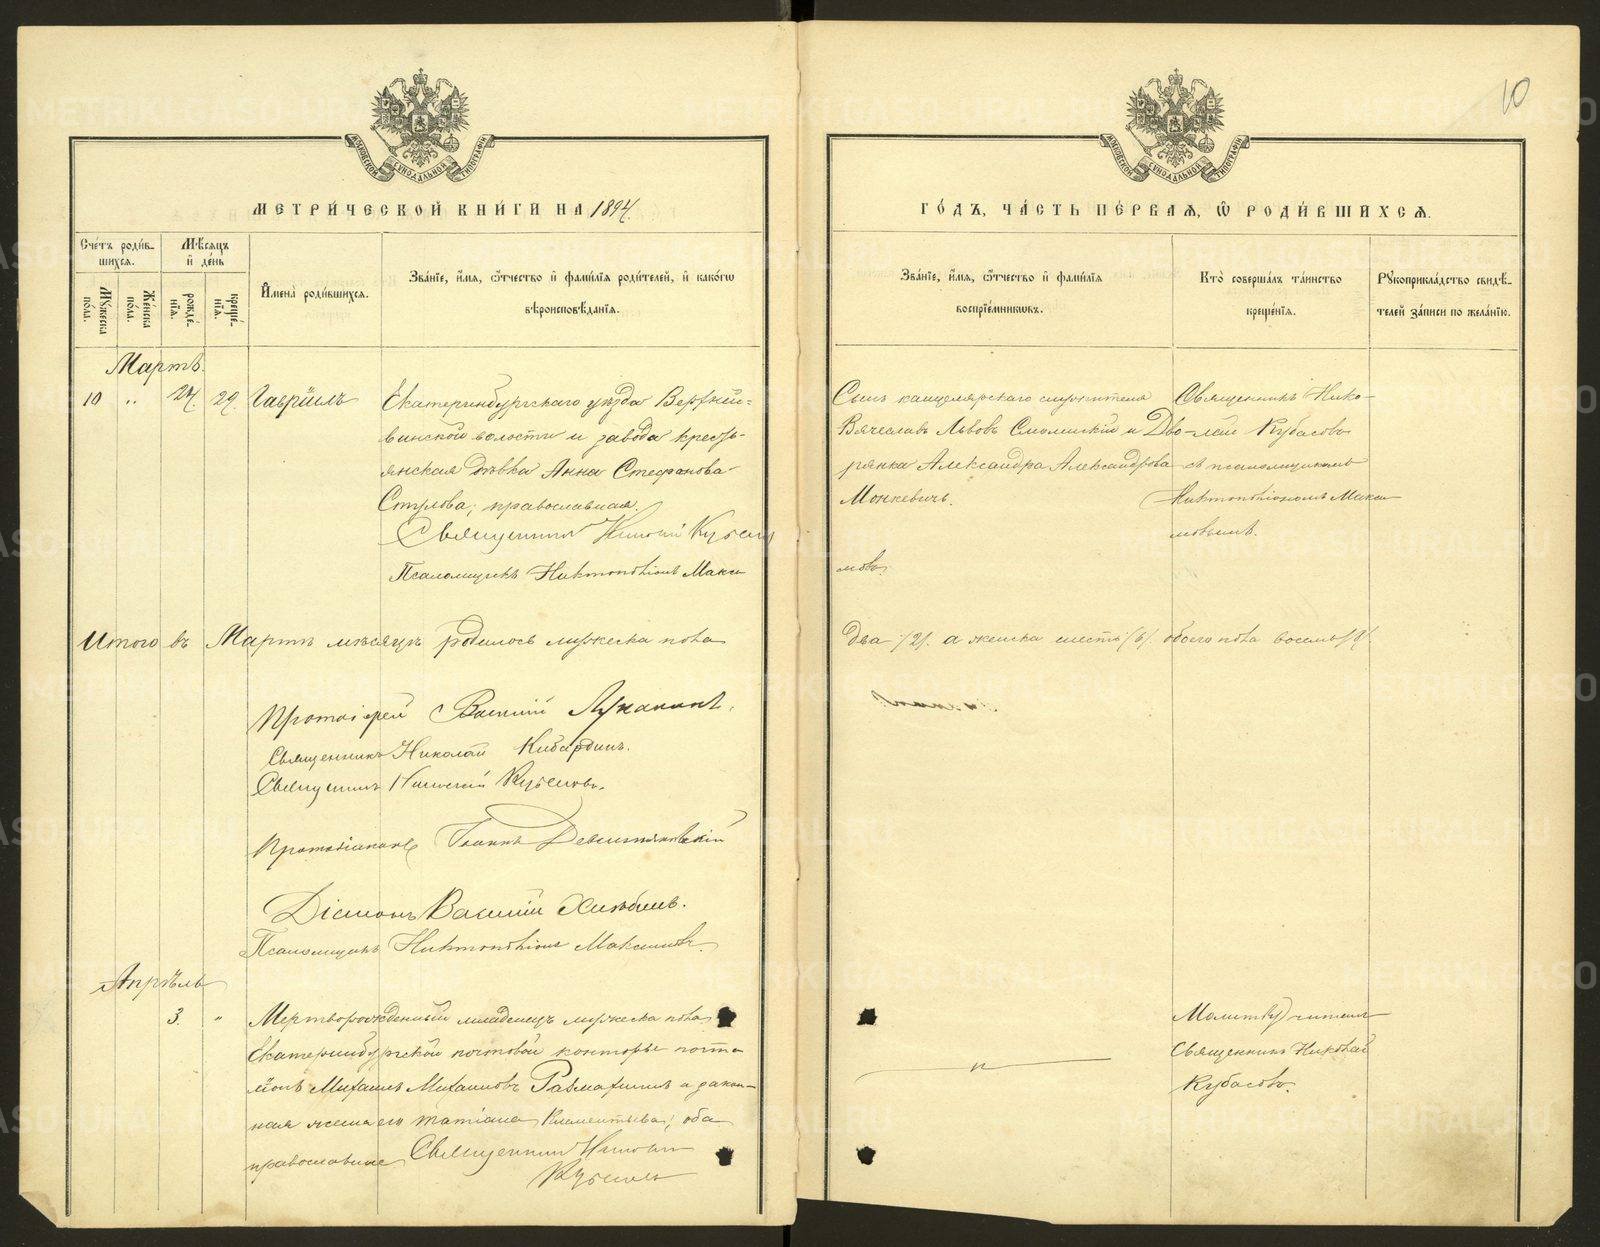 10
МЕТРИЧЕСКОЙ КНИГИ НА 1894
ГОДЪ, ЧАСТЬ ПЕРВАЯ, Ѽ РОДИВШИХСЯ.
МОСКОВСКОЙ СѴНОДАЛЬНОЙ ТИПОГРАФІИ
МОСКОВСКОЙ СѴНОДАЛЬНОЙ ТИПОГРАФІИ
Счетъ родив-
шихся.
Мѣсяцъ
и день
Мужеска
пола.
Женска
пола.
рожде-
нія.
креще-
нія.
Имена родившихся.
Званіе, имя, ѿчество и фамилія родителей, и какогѡ
вѣроисповѣданія.
Званіе, имя, ѿчество и фамилія
воспріемниковъ.
Кто совершалъ таинство
крещенія.
Рукоприкладство свидѣ-
телей записи по желанію.
Мартъ.
10 " 24 29 Гавріилъ
Екатеринбургскаго уѣзда Верхней-
винской волости и завода кресть-
янская дѣвка Анна Стефанова
Стулова, православная.
Священникъ Николай Кубасовъ
Псаломщикъ Никтополіонъ Макси
Сынъ канцелярскаго служителя
Вячеславъ Львовъ Смолинскій и Дво-
рянка Александра Александрова
Монкевичъ.
мовъ.
Священникъ Нико-
лай Кубасовъ
съ псаломщикомъ
Никтополіономъ Макси
мовымъ.
Итого въ Мартѣ мѣсяцѣ родилось мужеска пола
два /2/. а женска шесть /6/. обоего пола восемь /8/
Протоіерей Василій Лукановъ.
Священникъ Николай Кибардинъ.
Священникъ Николай Кубасовъ.
Протодіаконъ Іоаннъ
Діаконъ Василій Хлѣбинъ.
Псаломщикъ Никтополіонъ Максимовъ.
Апрѣль
3. " Мертворожденный младенецъ мужеска пола
Екатеринбургской почтовой конторы почта
ліонъ Михаилъ Михаиловъ и закон-
ная жена его Татіана Климентьева; оба
православные
Священникъ Николай
Кубасовъ
"
Молитву читалъ
Священникъ Николай
Кубасовъ.
METRIKI.GASO-URAL.RU